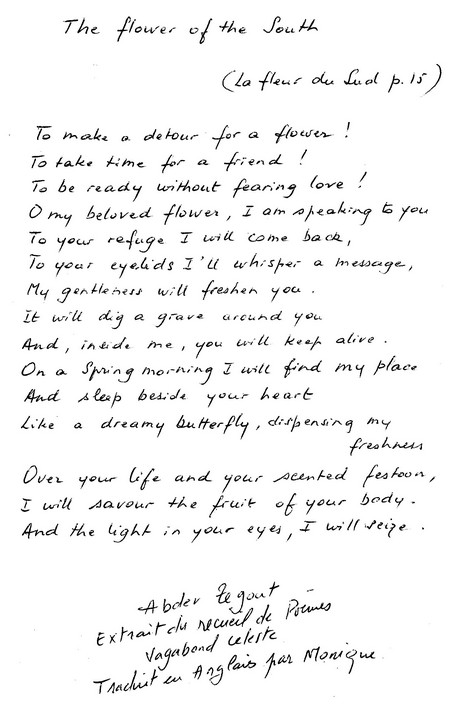 The flower of the South
(La fleur du Sud p.15)
To make a detour for a flower !
To take time for a friend !
To be ready without fearing love !
O my beloved flower, I am speaking to you
To your refuge I will come back,
To your eyelids I'll whisper a message,
My gentleness will freshen you.
It will dig a grave around you
And, inside me, you will keep alive.
On a Spring morning I will find my place
And sleep beside your heart
Like a dreamy butterfly, dispensing my
freshness
Over your life and your scented festoon,
I will savour the fruit of your body.
And the light in your eyes, I will seize.
Abder Zegout
Extrait du recueil de Poèmes
Vagabond céleste
Traduit en Anglais par Monique